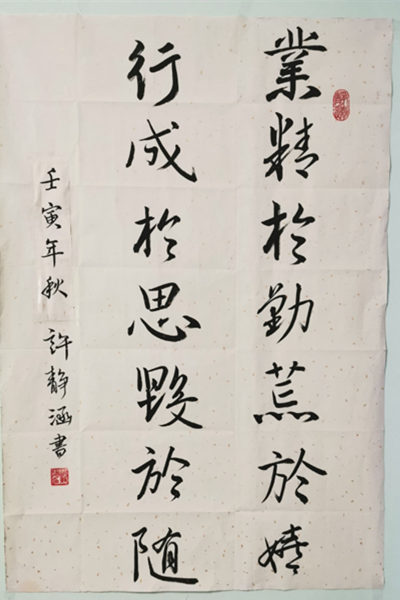 業精於勤荒於嬉
行成於思毀於随
壬寅年秋 許靜涵書